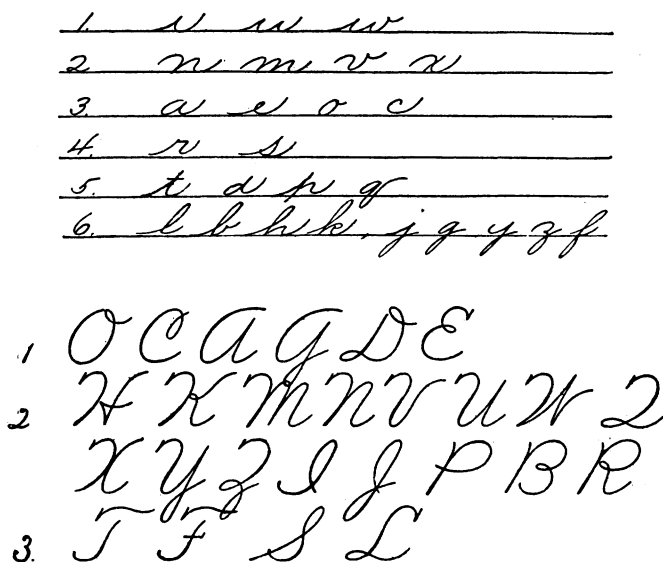 1. i u w
2 n m v x
3. a e o c
4. r s
5. t d p q
6. l b h k, j g y z f
1 O C A G D E
2 H K M N V U W Q
X Y Z I J P B R
3. T F S L